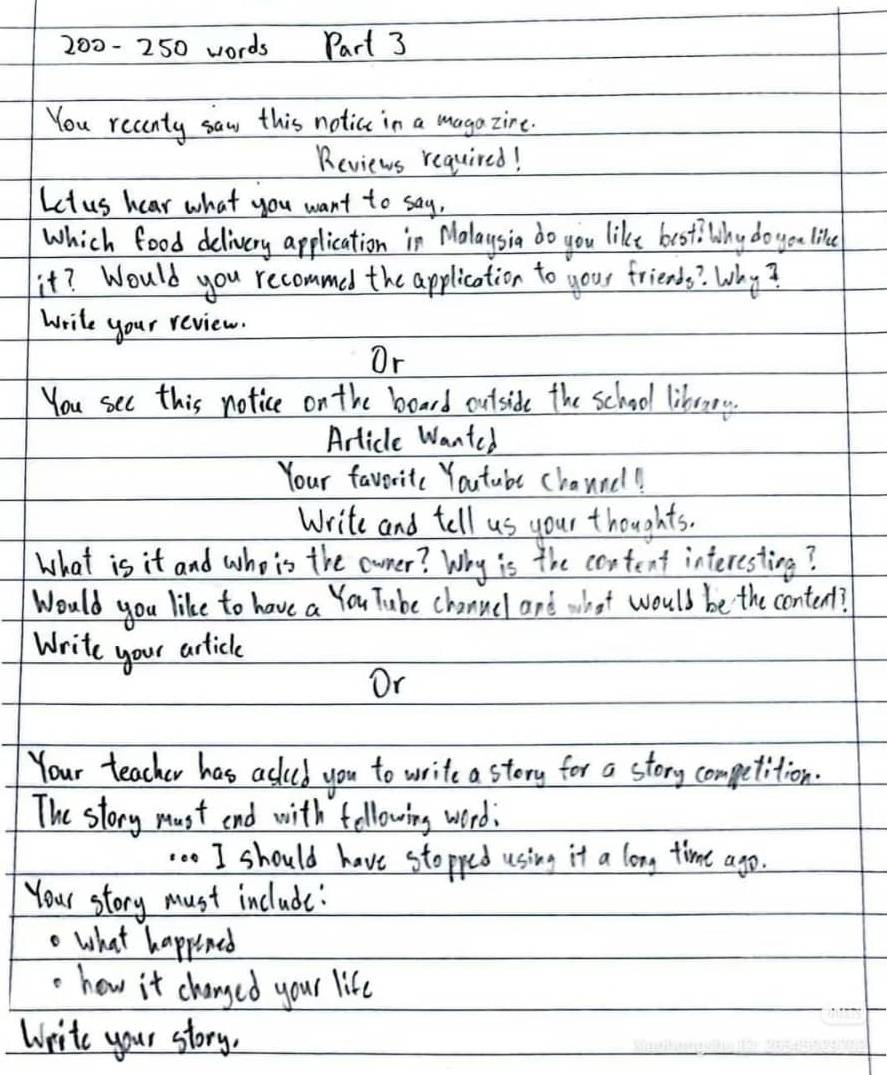 200 - 250 words Part 3
You recenty saw this notice in a magazine.
Reviews required!
Let us hear what you want to say.
Which food delivery application in Malaysia do you like best? Why do you like
it? Would you recommed the application to your friends? Why?
Write your review.
Or
You see this notice on the board outside the school library.
Article Wanted
Your favorite Youtube Channel!
Write and tell us your thoughts.
What is it and who is the owner? Why is the content interesting?
Would you like to have a YouTube channel and what would be the content?
Write your article
Or
Your teacher has asked you to write a story for a story competition.
The story must end with following word:
... I should have stopped using it a long time ago.
Your story must include:
• what happened
• how it changed your life
Write your story.